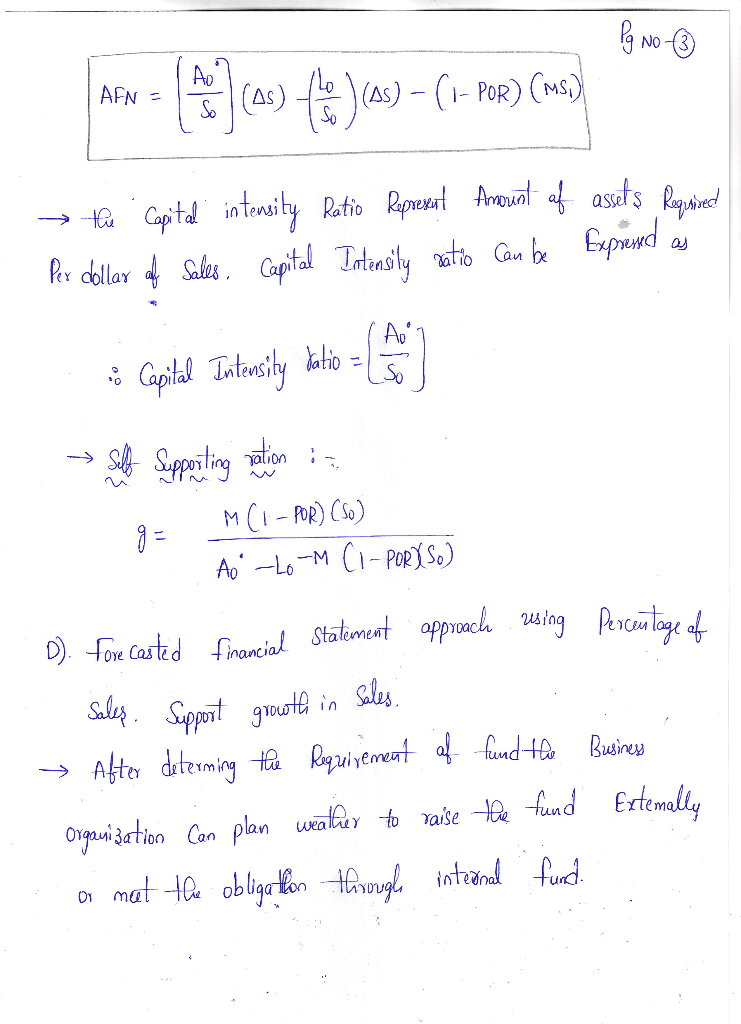 Pg NO-③
AFN = [A₀*/S₀] (ΔS) - (L₀/S₀) (ΔS) - (1- POR) (MS₁)
→ the Capital intensity Ratio Represent Amount of assets Required
Per dollar of Sales. Capital Intensity ratio Can be Expressed as
∴ Capital Intensity ratio = (A₀*/S₀)
→ Self Supporting ration :-
g = M (1 - POR) (S₀) / A₀* - L₀ - M (1 - POR)(S₀)
D). Forecasted financial Statement approach using Percentage of
Sales. Support growth in Sales.
→ After determing the Requirement of fund the Business
Organization Can plan weather to raise the fund Externally
or meet the obligation through internal fund.